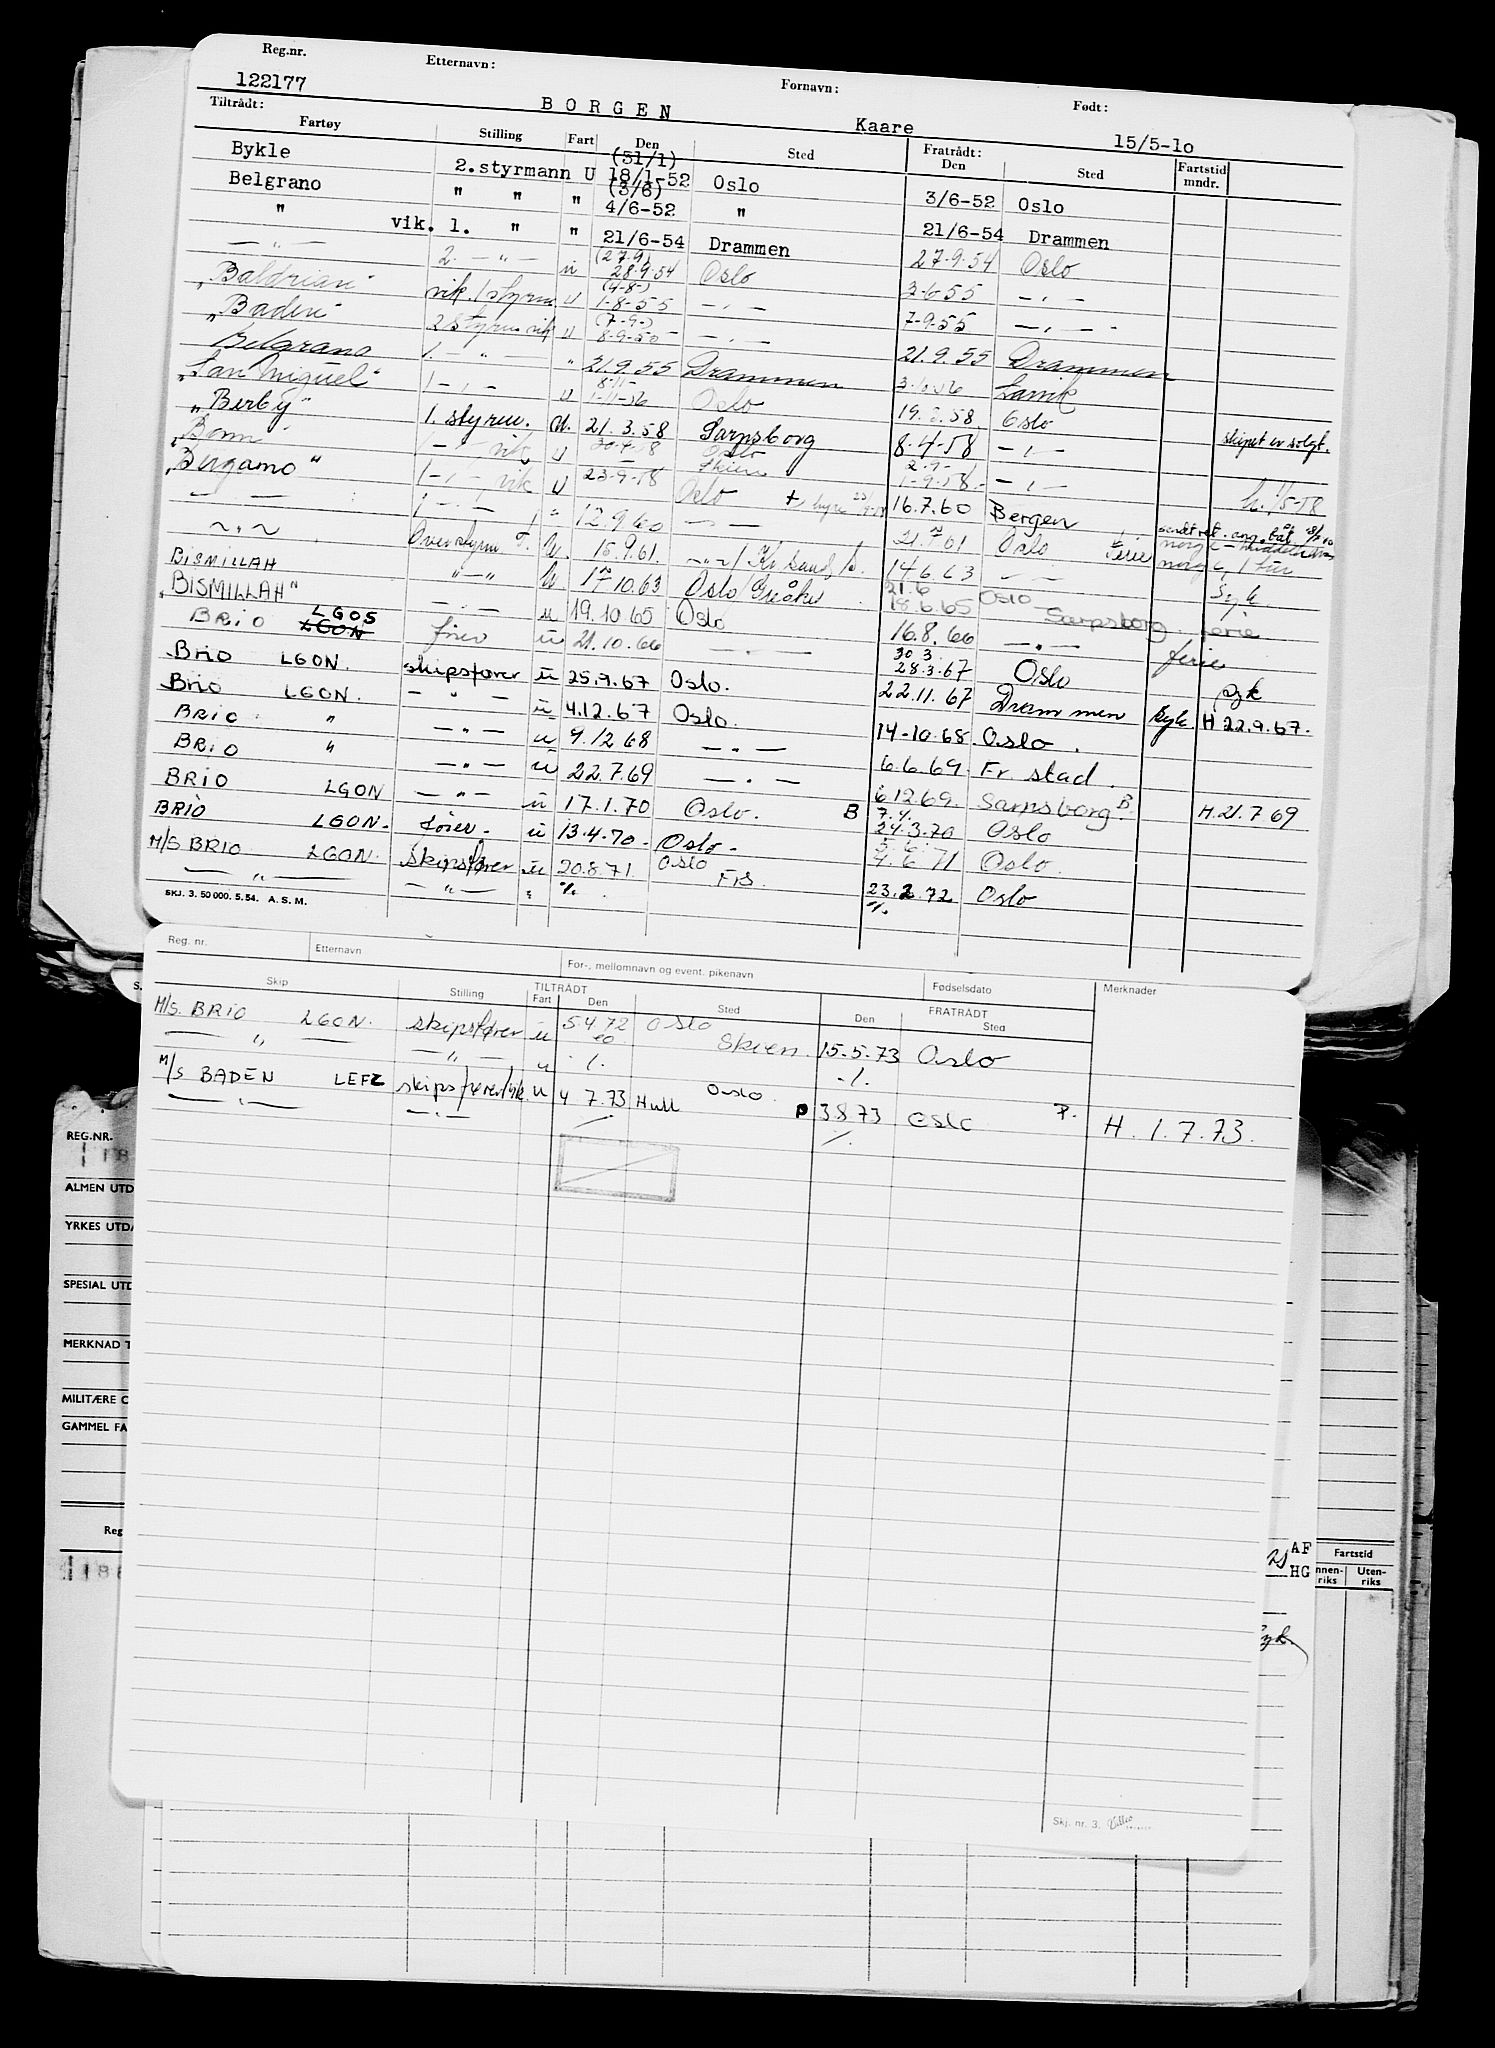 Reg.nr. Etternavn: Fornavn: Født:
122177 BORGEN Kaare 15/5-10
Tiltrådt: Fratrådt:
Fartøy Stilling Fart Den Sted Den Sted Fartstid mndr.
Bykle 2.styrmann U (31/1) 18/1-52 Oslo 3/6-52 Oslo
Belgrano " " " (3/6) 4/6-52 " 21/6-54 Drammen
" vik. 1. " " 21/6-54 Drammen 27.9.54 Oslo
— " — 2. — " — u (27.9) 28.9.54 Oslo 3.6.55 — " —
"Baldrian" vik. 1 styrm. u (4-8-) 1-8-55 — " — 7-9.55 — " —
"Baden" 2 styrm vik u (7-9-) 8-9-55 — " — 21.9.55 Drammen
Belgrano 1. — " — " 21.9.55 Drammen Larvik
"San Miguel" 1 — " — u 8-11- 1-11-56 Oslo 58. Oslo skipet er solgt.
"Berby" 1. styrm. U. 21.3.58 Sarpsborg 8.4-58 — " —
"Bonn" 1 — " — vik u Oslo Skien 1-9-58.- — " —
"Bergamo" 1 — " — vik u 23-9-58 Oslo 16.7.60 Bergen
— — 1 — " — " 12.9.60 — " — 21. 61 Oslo Ferie
~ " ~ Overstyrm U. 15.9.61. ~ " ~ / Kr.sand, S. 14.6.63 — — Syk
BISMILLAH " — " U 17.10.63 Oslo / Greåker 21.6 18.6.65 Oslo Sarpsborg ferie
"BISMILLAH" — " — u 19.10.65 Oslo 16.8.66 — " — ferie
BRIO LGOS LGON fører u 21.10.66 — " — 30 3. 28.3.67 Oslo syk
Brio LGON. skipsfører u 25.9.67 Oslo. 22.11.67 Drammen syk. H 22.9.67.
Brio LGON. — " — u 4.12.67 Oslo. 14-10.68. Oslo.
BRIO " — " — u 9.12.68 — " — 6.6.69. Fr.stad.
BRIO " — " — u 22.7.69 — " — 6.12.69. Sarpsborg B. H.21.7 69
BRIO LGON — " — u 17.1.70 Oslo. B 7.4. 24.3.70 Oslo
BRIO LGON. fører. u 13.4.70. Oslo. 4.6.71 Oslo.
M/S BRIO LGON. skipsfører u 20.8.71. Oslo 23.2.72 Oslo
— " — — " — " ./. FrS. ./.
SKJ. 3. 50 000. 5. 54. A. S. M.
Reg. nr. Etternavn For-, mellomnavn og event. pikenavn Fødselsdato Merknader
Skip Stilling TILTRÅDT FRATRÅDT
Fart Den Sted Den Sted
M/S. BRIO LGON. skipsfører u 5.4.72 Oslo 15.5.73 Oslo
— " — — " — " ./. Skien. ./.
M/S BADEN LEFZ skipsfører/vik. u 4 7.73 Hull Oslo P 3.8.73 Oslo P. H. 1.7.73.
— " — — " — ./. ./.
Skj. nr. 3.
REG.NR.
ALMEN UTD
YRKES UTDA
SPESIAL UTD
MERKNAD T
MILITÆRE O
GAMMEL FA
Reg
AF
HG
Fartstid
Innen-riks Uten-riks